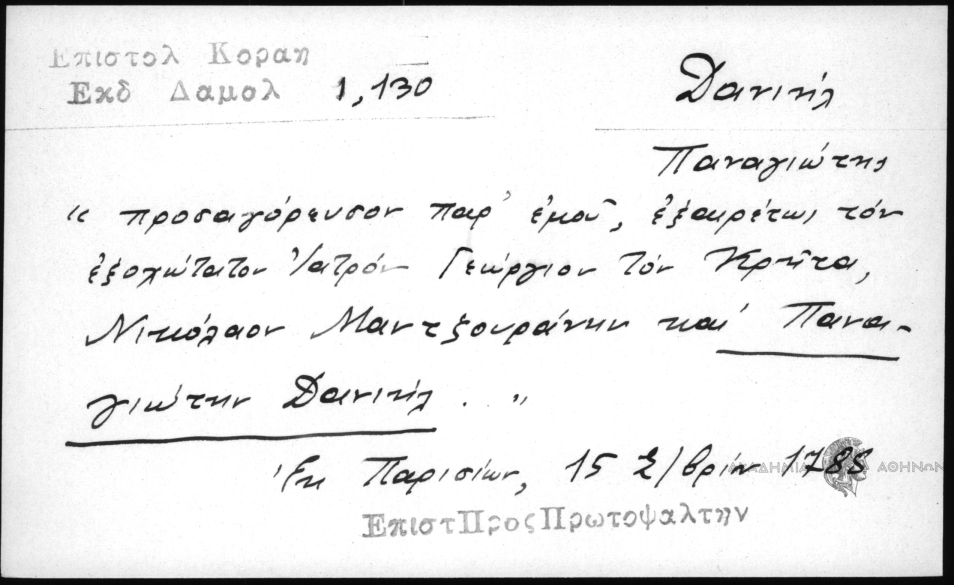 Επιστολ Κοραη
Εκδ Δαμολ 1,130
Δανιήλ
Παναγιώτης
« προσαγόρευσον παρ' ἐμοῦ, ἐξαιρέτως τόν
ἐξοχώτατον Ἰατρόν Γεώργιον τόν Κρῆτα,
Νικόλαον Μαντζουράνην καί Πανα-
γιώτην Δανιήλ . "
Ἐκ Παρισίων, 15 Σ/βρίου 1788
ΑΚΑΔΗΜΙΑ ΑΘΗΝΩΝ
ΕπιστΠροςΠρωτοψαλτην